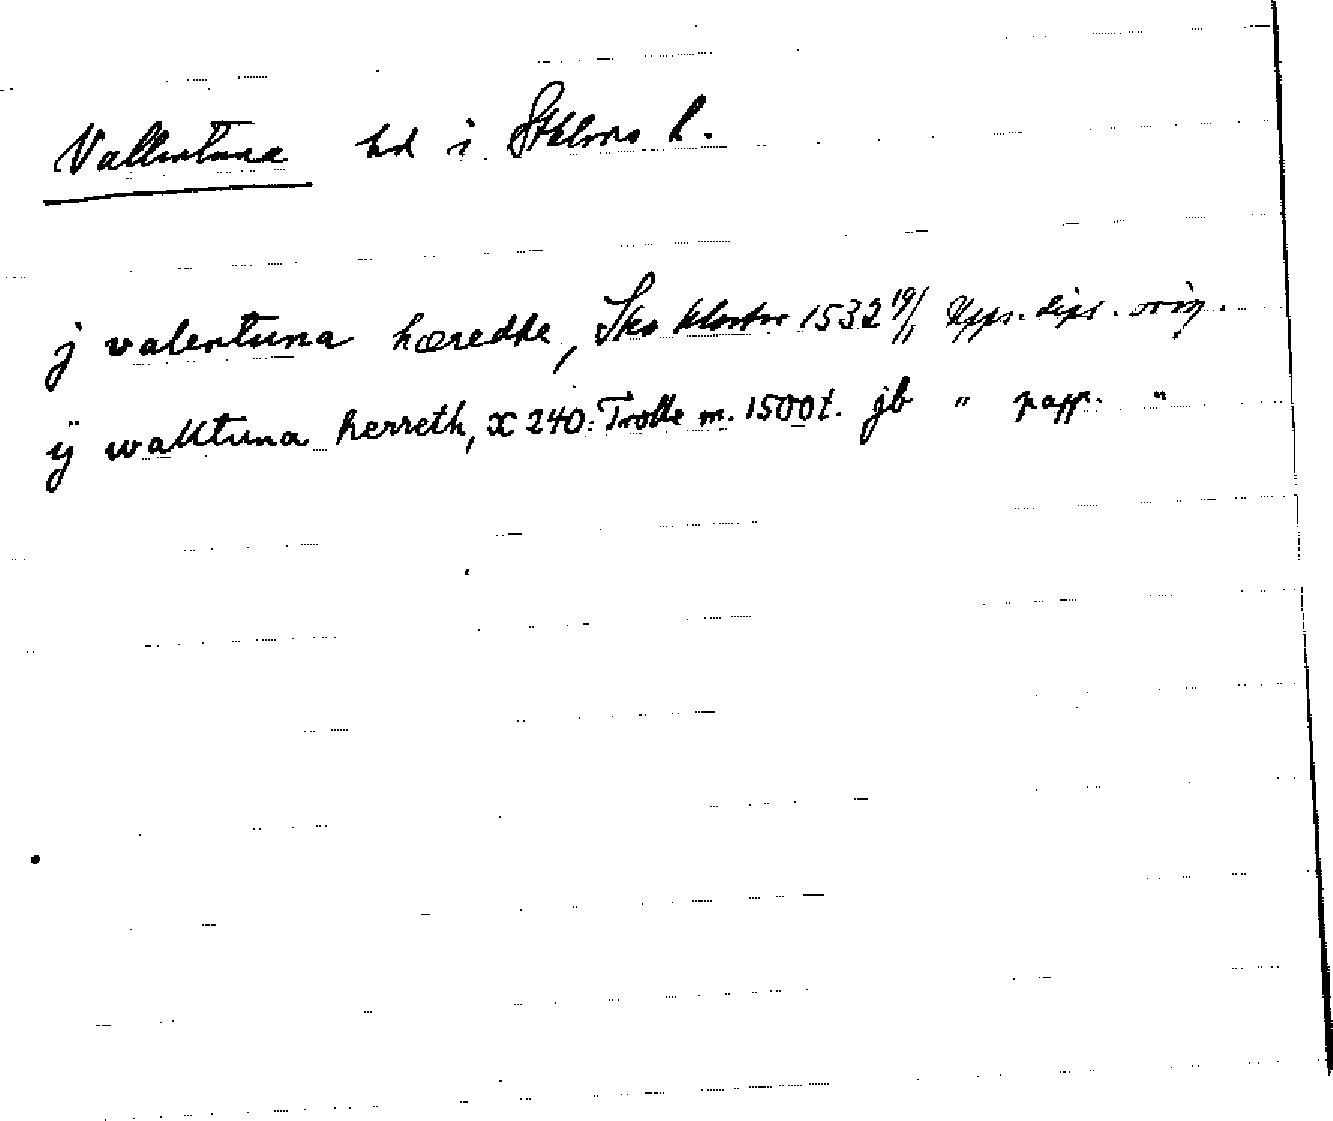 Vallentuna hd i Sthlms l.
j valentuna hæredhe, Sko kloster 1532 19/1 Upps. dipl. orig.
ÿ walltuna herreth, X 240: Trolle m. 1500 t. jb " papp. "